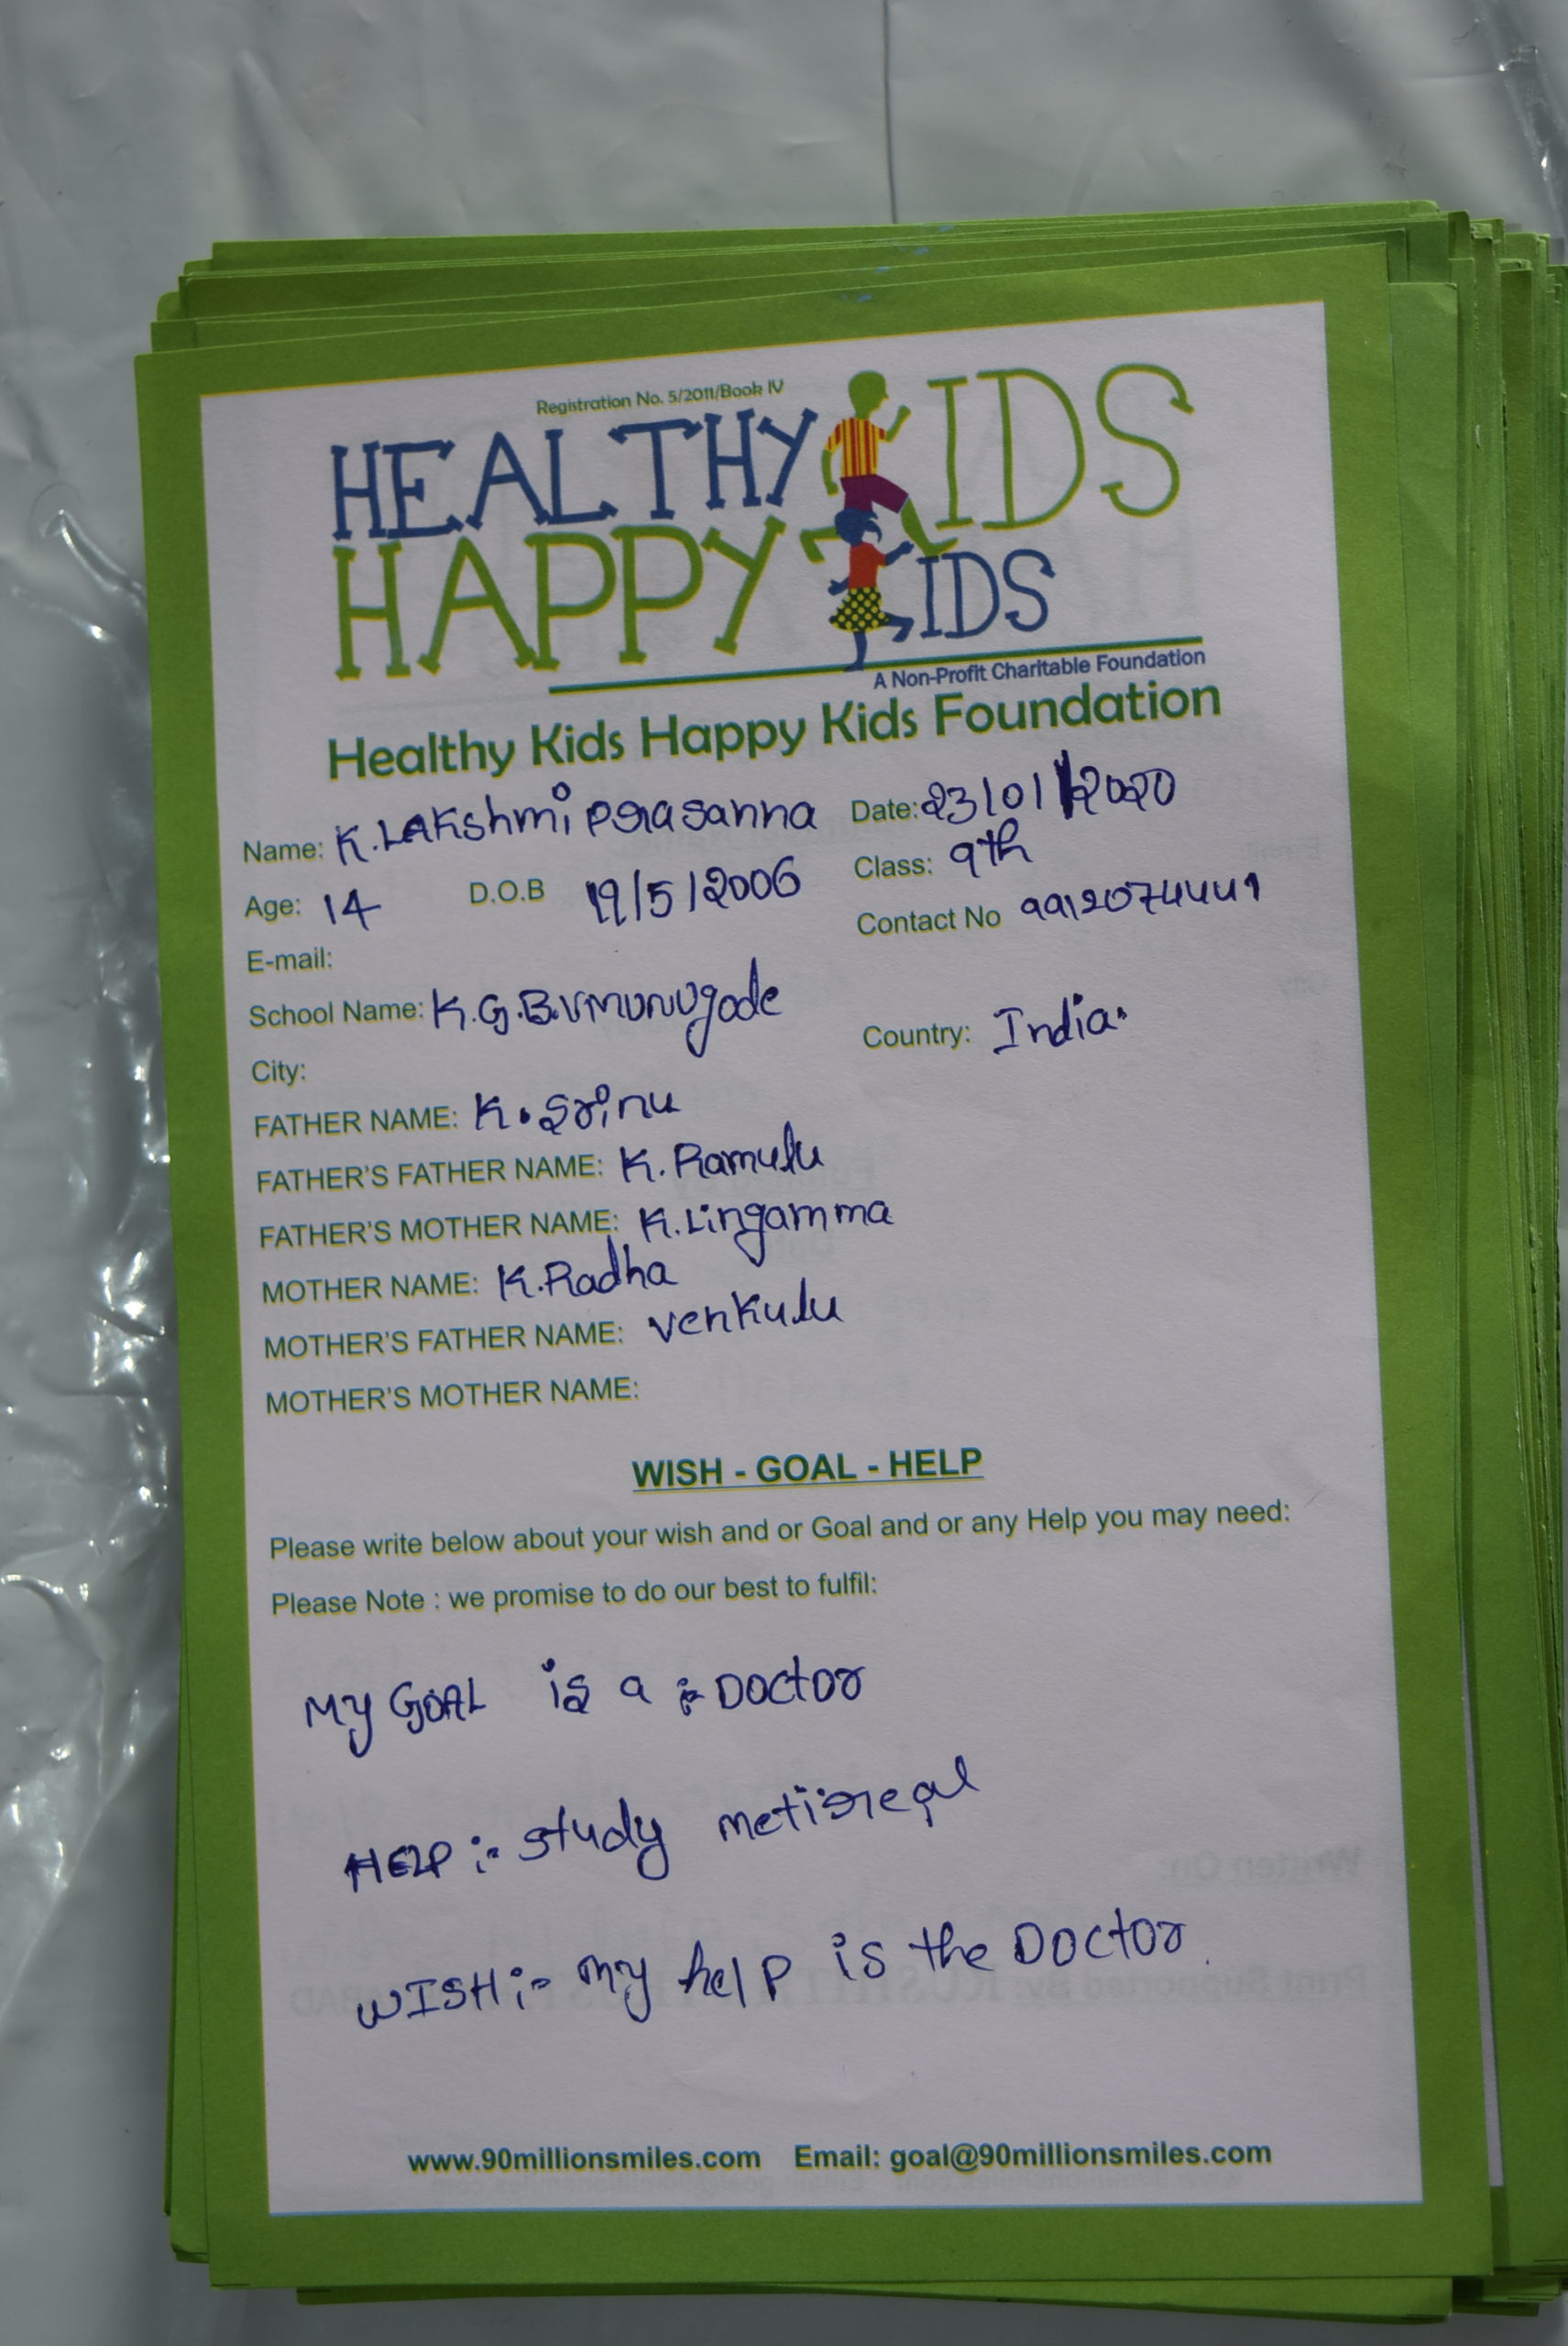 Registration No. 5/2011/Book IV
HEALTHY KIDS
HAPPY KIDS
A Non-Profit Charitable Foundation
Healthy Kids Happy Kids Foundation
Name: K. LAKshmi Prasanna Date: 23/01/2020
Age: 14 D.O.B 19/5/2006 Class: 9th
Contact No 9912074441
E-mail:
School Name: K.G.B.V munugode
City: Country: India.
FATHER NAME: K. Srinu
FATHER'S FATHER NAME: K. Ramulu
FATHER'S MOTHER NAME: K. Lingamma
MOTHER NAME: K. Radha
MOTHER'S FATHER NAME: venkulu
MOTHER'S MOTHER NAME:
WISH - GOAL - HELP
Please write below about your wish and or Goal and or any Help you may need:
Please Note : we promise to do our best to fulfil:
My GOAL is a :- Doctor
HELP :- study metireal
WISH :- my help is the Doctor
www.90millionsmiles.com Email: goal@90millionsmiles.com